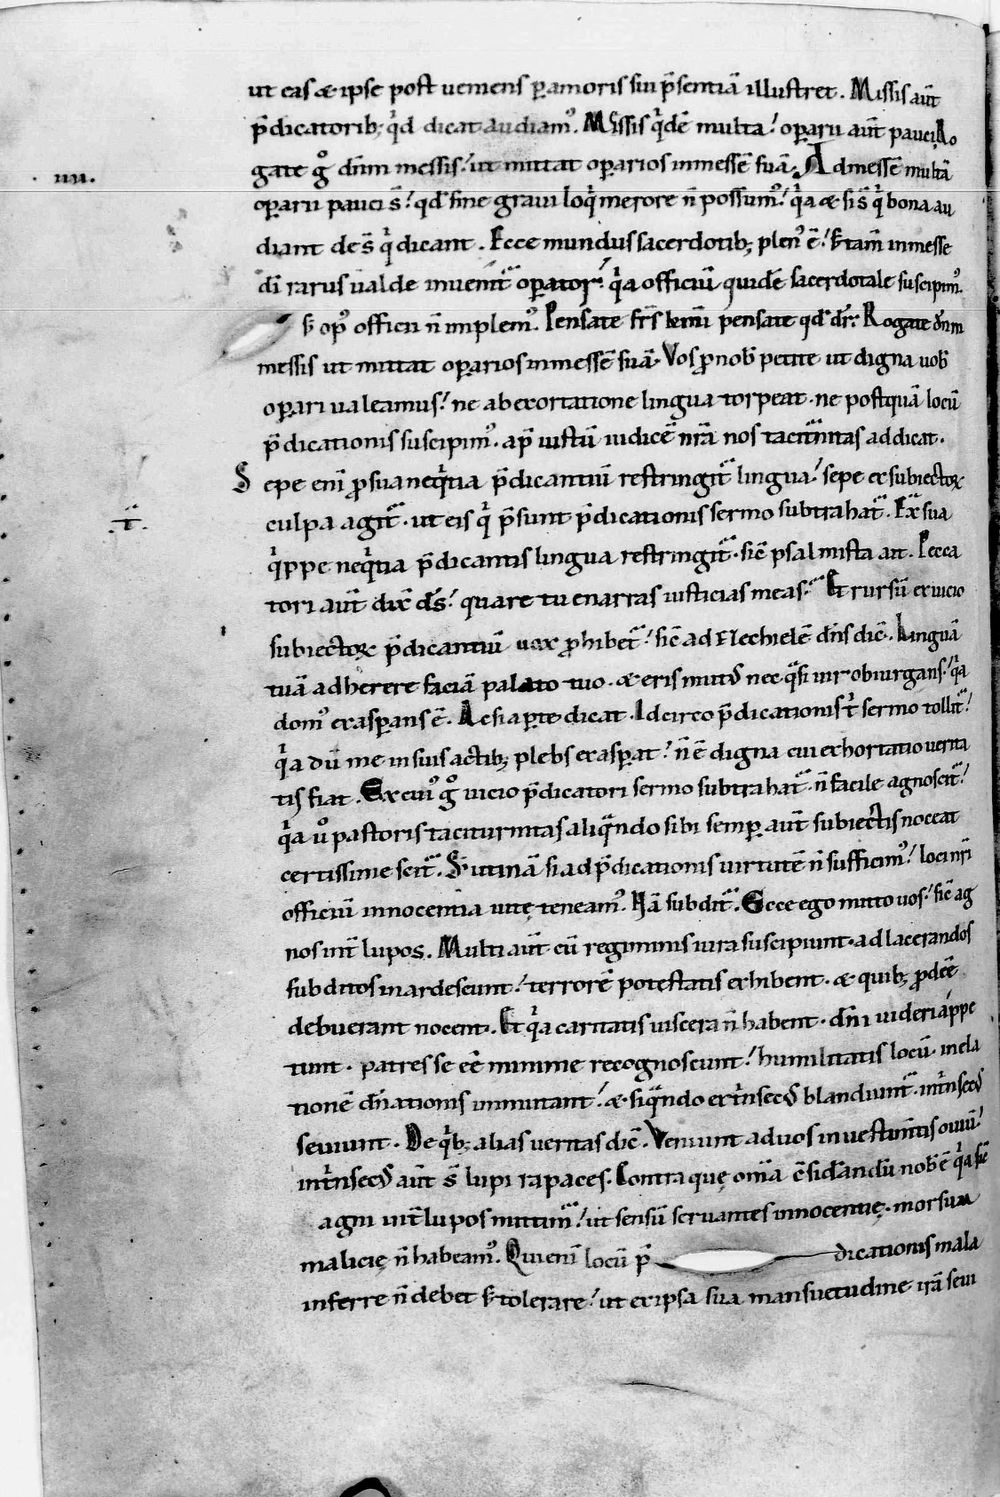 ut eas & ipse post ueniens p̱ amoris sui p̄sentiā illustret. Missis aūt
p̄dicatorib; qͥd dicat audiamꝰ. Missis qͥdē multa! op̱arii aūt pauci. Ro
gate gͦ dn̄m messis! ut mittat op̱arios in messē suā. Ad messē multā
op̱arii pauci s̄! qd̄ sine graui loqͥ merore n̄ possumꝰ! qͥa & si s̄ qͥ bona au
.iiii.
diant des̄ qͥ dicant. Ecce mundus sacerdotib; plenꝰ ē! s; tam̄ in messe
dī rarus ualde inuenit᷑ op̱ator! qͥa officiū quidē sacerdotale suscipimꝰ.
s; opꝰ officii n̄ implemꝰ. Pensate fr̄s kmī pensate qd̄ dr̄. Rogate dn̄m
messis ut mittat op̱arios in messē suā. Vos ꝓ nob̄ petite ut digna uob̄
op̱ari ualeamus! ne ab exortatione lingua torpeat. ne postquā locū
p̄dicationis suscipimꝰ. ap̄ iustū iudicē nr̄a nos taciturnitas addicat.
Sepe enī ꝓ sua neqͥtia p̄dicantiū restringit᷑ lingua! sepe ex subiectoꝝ
culpa agit᷑. ut eis qͥ p̄sunt p̄dicationis sermo subtrahat᷑. Ex sua
qͥppe neqͥtia p̄dicantis lingua restringit᷑. sic̄ psalmista ait. Pecca
tori aūt dix̄ ds̄! quare tu enarras iusticias meas? Et rursū ex uicio
subiectoꝝ p̄dicantiū uox ꝓhibet᷑! sic̄ ad Ezechielē dn̄s dic̄. Linguā
tuā adherere faciā palato tuo. & eris mutꝰ nec qͣsi uir obiurgans! qͥa
domꝰ exasp̱ans ē. Ac si ap̱te dicat. Idcirco p̄dicationis tͥ sermo tollit᷑!
qͥa dū me in suis actib; plebs exasp̱at! n̄ ē digna cui exhortatio uerita
tis fiat. Ex cuiꝰ gͦ uicio p̄dicatori sermo subtrahat᷑. n̄ facile agnoscit᷑!
qͥa uͦ pastoris taciturnitas aliqͣndo sibi semp̱ aūt subiectis noceat
certissime scit᷑. S; utinā si ad p̄dicationis uirtutē n̄ sufficimꝰ! loci nr̄i
officiū in innocentia uitę teneamꝰ. Nā subdit᷑. Ecce ego mitto uos! sic̄ ag
nos int̄ lupos. Multi aūt cū regiminis iura suscipiunt. ad lacerandos
subditos inardescunt! terrorē potestatis exhibent. & quib; ꝓdēē
debuerant nocent. Et qͥa caritatis uiscera n̄ habent. dn̄i uideri appe
tunt. patres se ēē minime recognoscunt! humilitatis locū. in ela
tionē dn̄ationis immutant! & siqͣndo extͥnsecꝰ blandiunt᷑. intͥnsecꝰ
seuiunt. De qͥb; alias ueritas dic̄. Veniunt ad uos in uestimtis ouiū!
intͥnsecꝰ aūt s̄ lupi rapaces. Contra quę om̄ia c̄sid̄andū nob̄ ē qͥa sic̄
agni int̄ lupos mittim᷑! ut sensū seruantes innocentię. morsum
malicię n̄ habeamꝰ. Qui enī locū p̄dicationis mala
inferre n̄ debet s; tolerare! ut ex ipsa sua mansuetudine irā seui